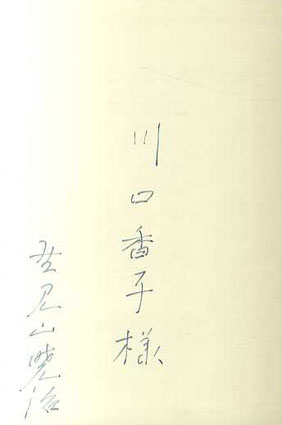 川口香子様
野見山暁治